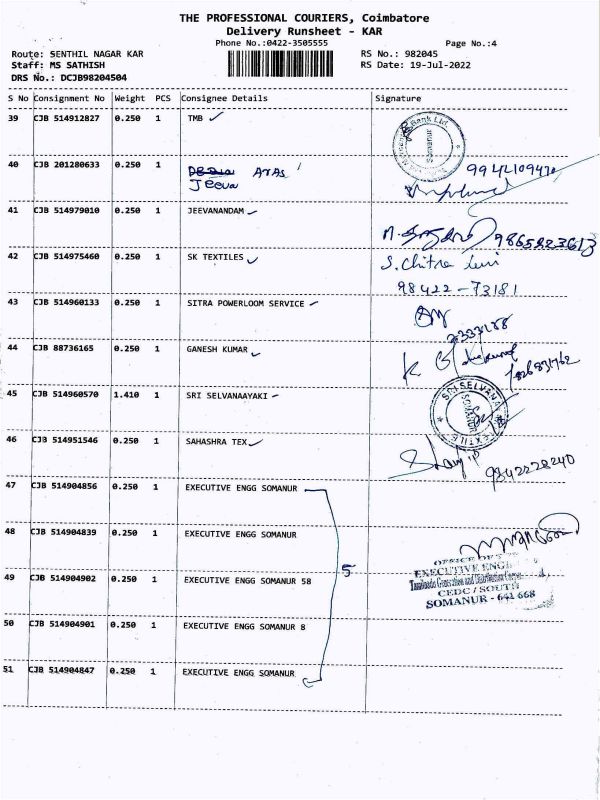 THE PROFESSIONAL COURIERS, Coimbatore
Delivery Runsheet - KAR
Phone No.:0422-3505555 Page No.:4
Route: SENTHIL NAGAR KAR RS No.: 982045
Staff: MS SATHISH RS Date: 19-Jul-2022
DRS No.: DCJB98204504
S No Consignment No Weight PCS Consignee Details Signature
39 CJB 514912827 0.250 1 TMB
Bank Ltd
40 CJB 201280633 0.250 1
Jeeva
41 CJB 514979010 0.250 1 JEEVANANDAM
42 CJB 514975460 0.250 1 SK TEXTILES S. Chitra
98422-73181
43 CJB 514960133 0.250 1 SITRA POWERLOOM SERVICE
44 CJB 88736165 0.250 1 GANESH KUMAR
45 CJB 514960570 1.410 1 SRI SELVANAAYAKI
SRI SELVANA
SOMANUR
TEXTILE
46 CJB 514951546 0.250 1 SAHASHRA TEX
9842228240
47 CJB 514904856 0.250 1 EXECUTIVE ENGG SOMANUR
48 CJB 514904839 0.250 1 EXECUTIVE ENGG SOMANUR
5
OFFICE OF
EXECUTIVE ENGI
49 CJB 514904902 0.250 1 EXECUTIVE ENGG SOMANUR 58
Tamilnadu Generation and Distribution
CEDC / SOUTH
SOMANUR - 641 668
50 CJB 514904901 0.250 1 EXECUTIVE ENGG SOMANUR 8
51 CJB 514904847 0.250 1 EXECUTIVE ENGG SOMANUR